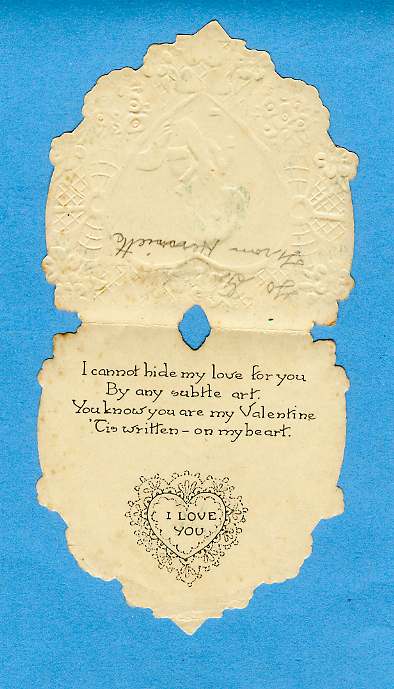 To
From Henriette
I cannot hide my love for you
By any subtle art.
You know you are my Valentine
'Tis written – on my heart.
I LOVE
YOU